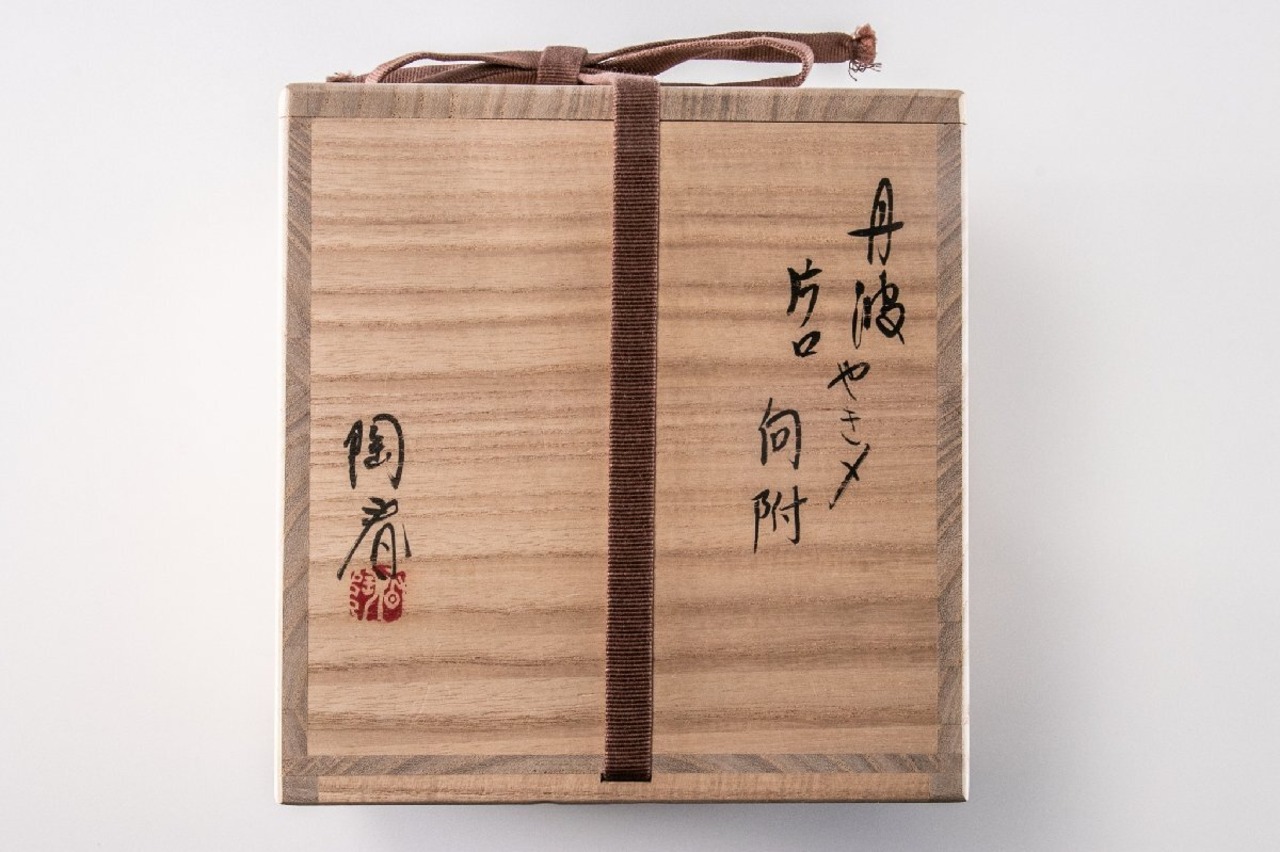 丹波やき〆
片口 向附
陶春